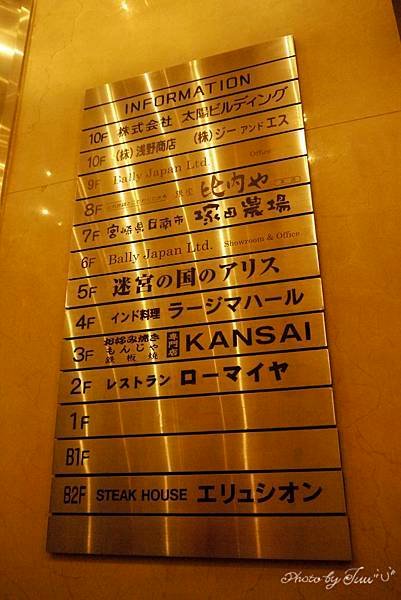 INFORMATION
10F 株式会社 太陽ビルディング
10F (株)浅野商店 (株)ジー アンド エス
9F Bally Japan Ltd. Office
8F 銀座 比内や
7F 宮崎県日南市 塚田農場
6F Bally Japan Ltd. Showroom & Office
5F 迷宮の国のアリス
4F インド料理 ラージマハール
3F お好み焼き もんじゃ 鉄板焼 専門店 KANSAI
2F レストラン ローマイヤ
1F
B1F
B2F STEAK HOUSE エリュシオン
Photo by